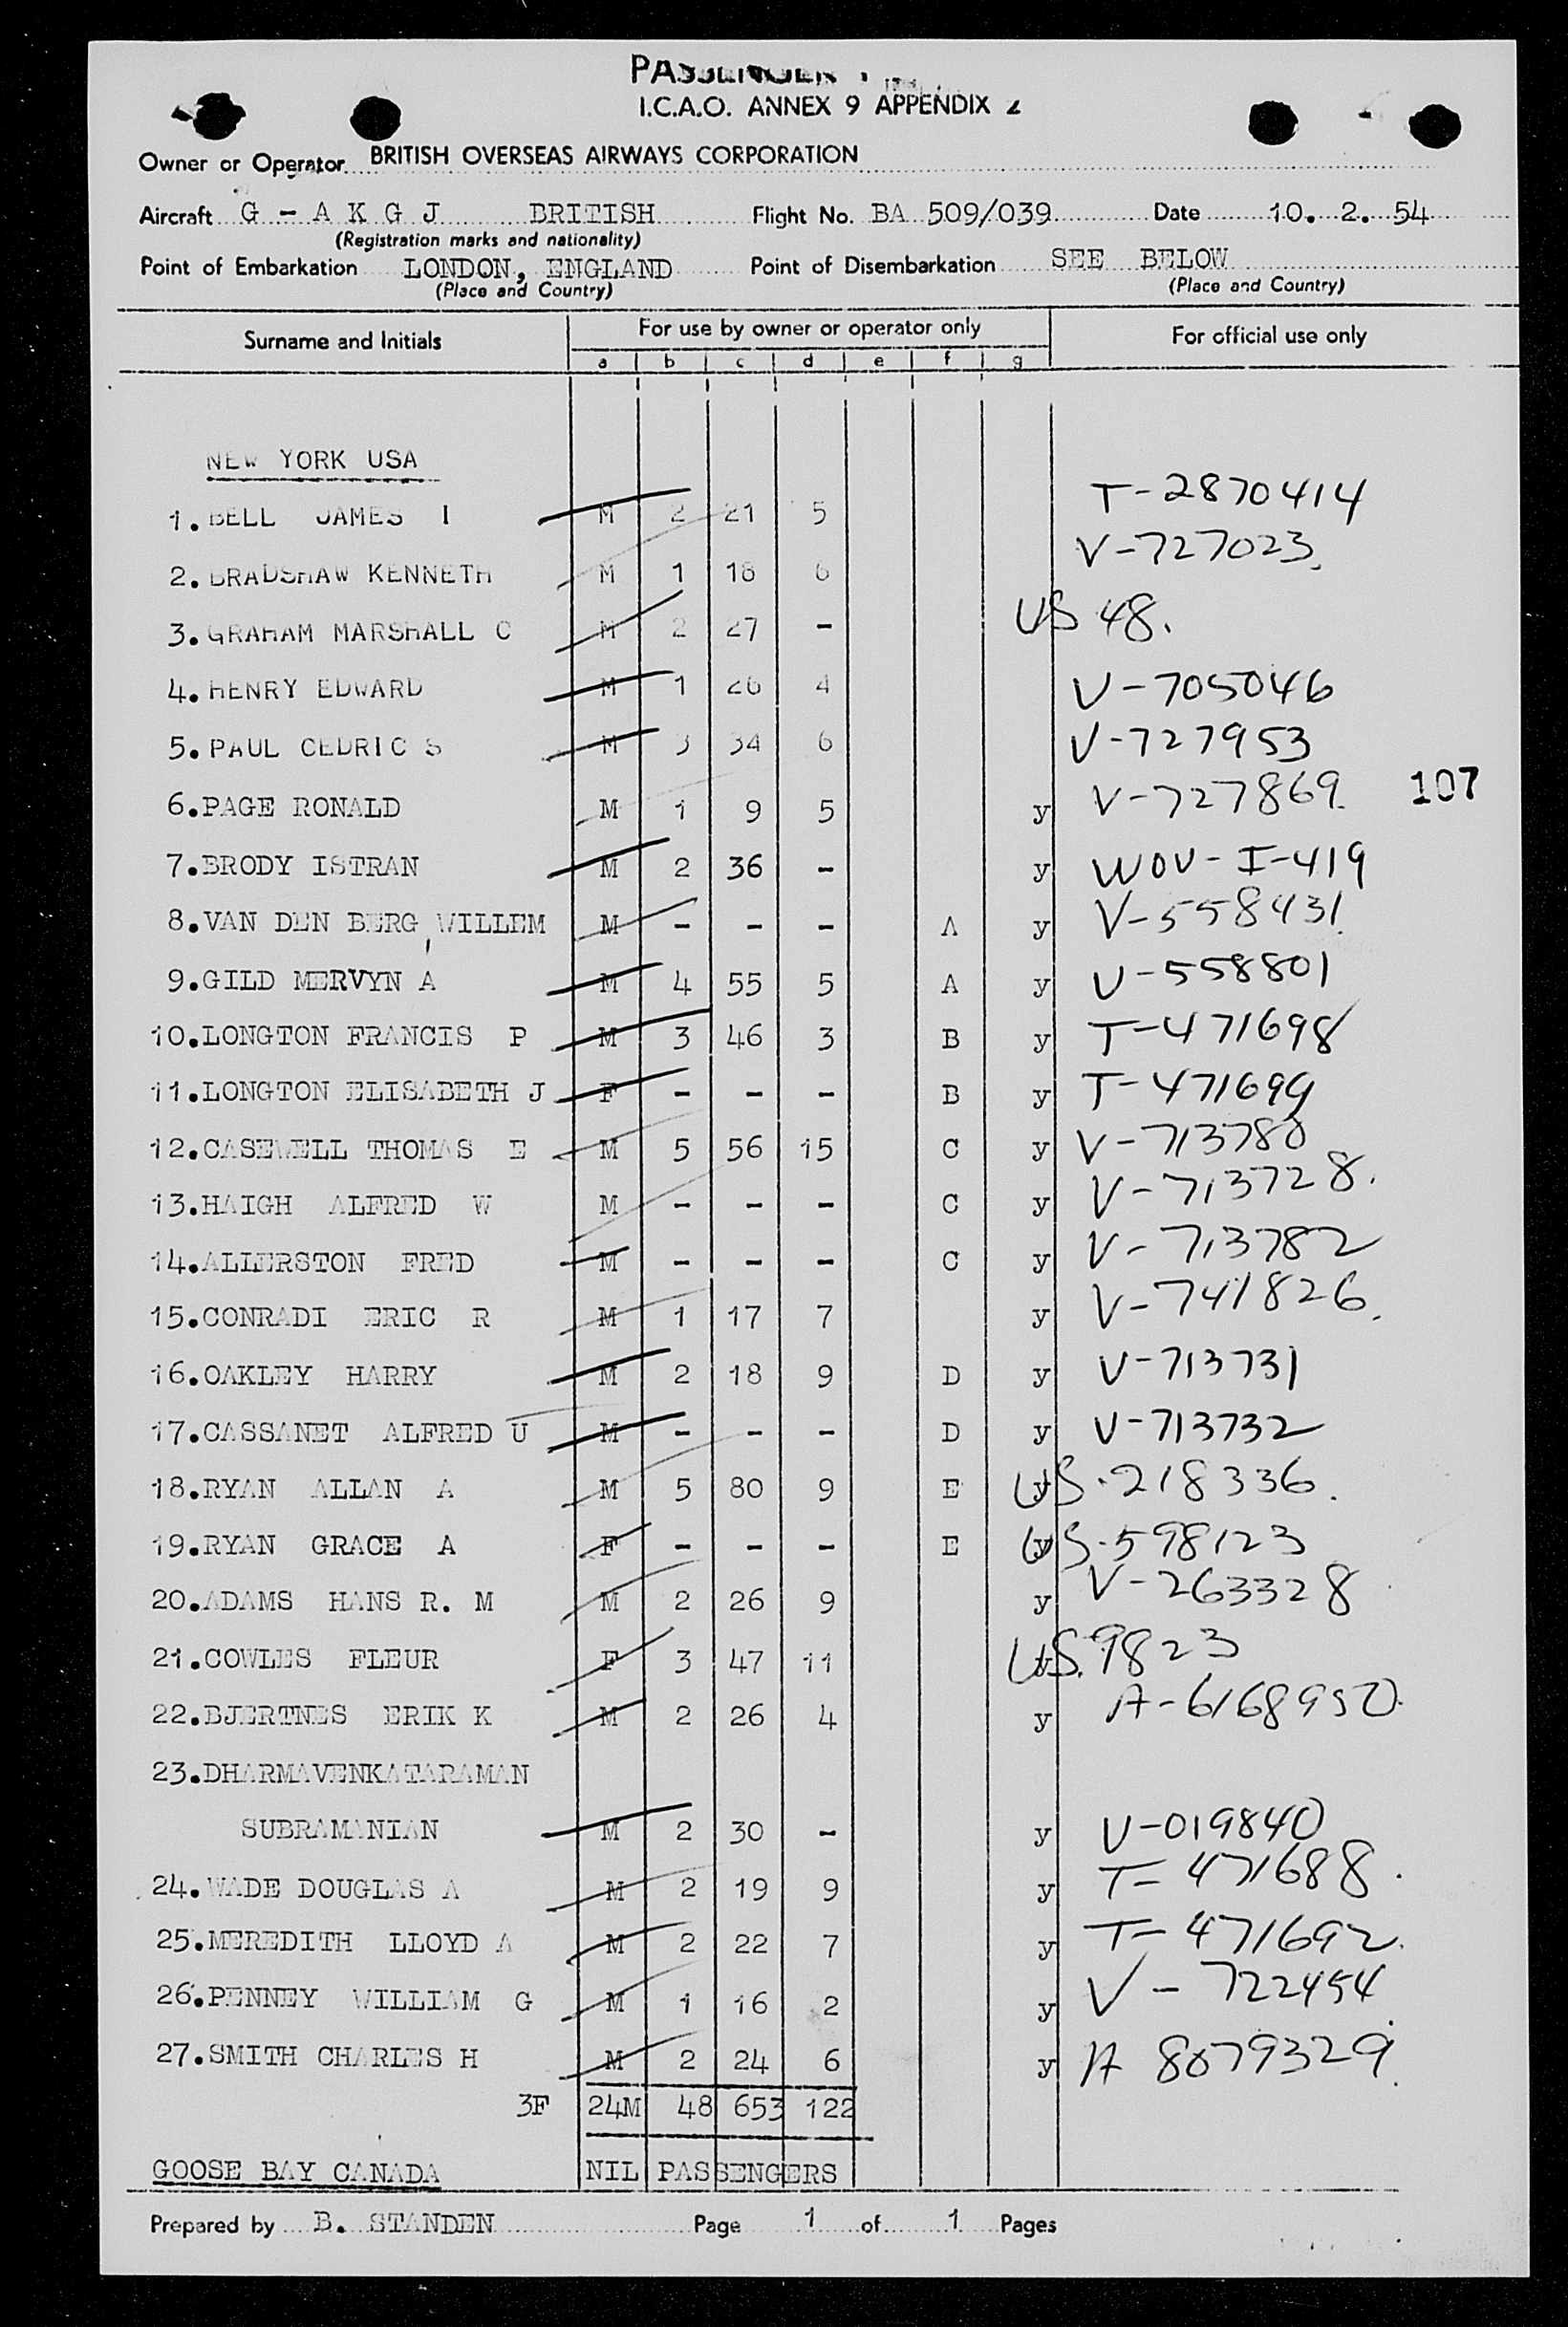 PASSENGER
I.C.A.O. ANNEX 9 APPENDIX 2
Owner or Operator BRITISH OVERSEAS AIRWAYS CORPORATION
Aircraft G - A K G J BRITISH Flight No. BA 509/039 Date 10. 2. 54
(Registration marks and nationality)
Point of Embarkation LONDON, ENGLAND Point of Disembarkation SEE BELOW
(Place and Country) (Place and Country)
Surname and Initials For use by owner or operator only For official use only
a b c d e f g
NEW YORK USA
1. BELL JAMES I M 2 21 5 T-2870414
2. BRADSHAW KENNETH M 1 18 6 V-727023.
3. GRAHAM MARSHALL C M 2 27 - US 48.
4. HENRY EDWARD M 1 26 4 V-705046
5. PAUL CEDRIC S M 3 34 6 V-727953
6. PAGE RONALD M 1 9 5 y V-727869. 107
7. BRODY ISTRAN M 2 36 - y WOV-I-419
8. VAN DEN BERG, WILLEM M - - - A y V-558431.
9. GILD MERVYN A M 4 55 5 A y V-558801
10. LONGTON FRANCIS P M 3 46 3 B y T-471698
11. LONGTON ELISABETH J F - - - B y T-471699
12. CASEWELL THOMAS E M 5 56 15 C y V-713780
13. HAIGH ALFRED W M - - - C y V-713728.
14. ALLERSTON FRED M - - - C y V-713782
15. CONRADI ERIC R M 1 17 7 y V-741826.
16. OAKLEY HARRY M 2 18 9 D y V-713731
17. CASSANET ALFRED U M - - - D y V-713732
18. RYAN ALLAN A M 5 80 9 E y US.218336.
19. RYAN GRACE A F - - - E y US.598123
20. ADAMS HANS R. M M 2 26 9 y V-263328
21. COWLES FLEUR F 3 47 11 y US.9823
22. BJERTNES ERIK K M 2 26 4 y A-6168950.
23. DHARMAVENKATARAMAN
SUBRAMANIAN M 2 30 - y V-019840
24. WADE DOUGLAS A M 2 19 9 y T-471688.
25. MEREDITH LLOYD A M 2 22 7 y T-471692.
26. PENNEY WILLIAM G M 1 16 2 y V-722454
27. SMITH CHARLES H M 2 24 6 y A 8079329.
3F 24M 48 653 122
GOOSE BAY CANADA NIL PASSENGERS
Prepared by B. STANDEN Page 1 of 1 Pages